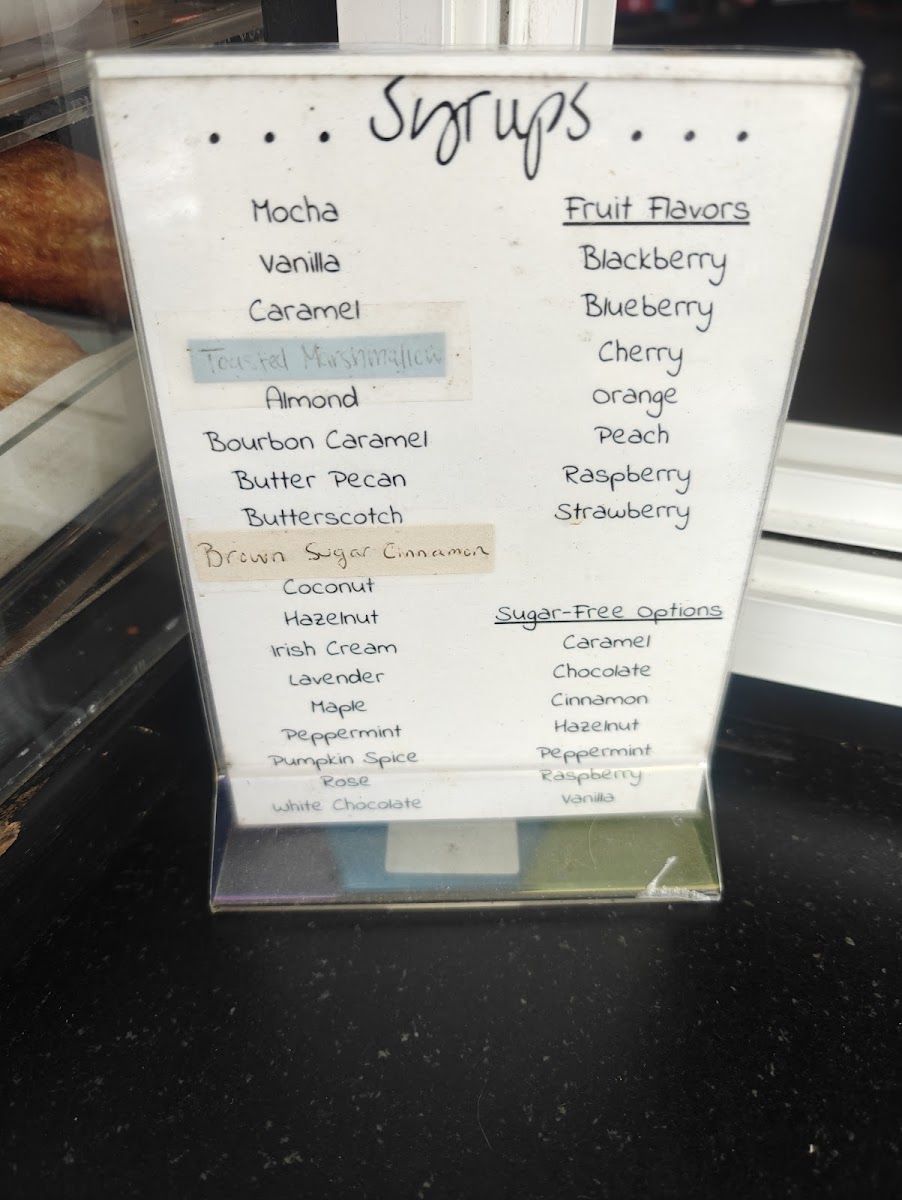 ... Syrups ...
Mocha
Vanilla
Caramel
Toasted Marshmallow
Almond
Bourbon Caramel
Butter Pecan
Butterscotch
Brown Sugar Cinnamon
Coconut
Hazelnut
Irish Cream
Lavender
Maple
Peppermint
Pumpkin Spice
Rose
White Chocolate
Fruit Flavors
Blackberry
Blueberry
Cherry
Orange
Peach
Raspberry
Strawberry
Sugar-Free Options
Caramel
Chocolate
Cinnamon
Hazelnut
Peppermint
Raspberry
Vanilla